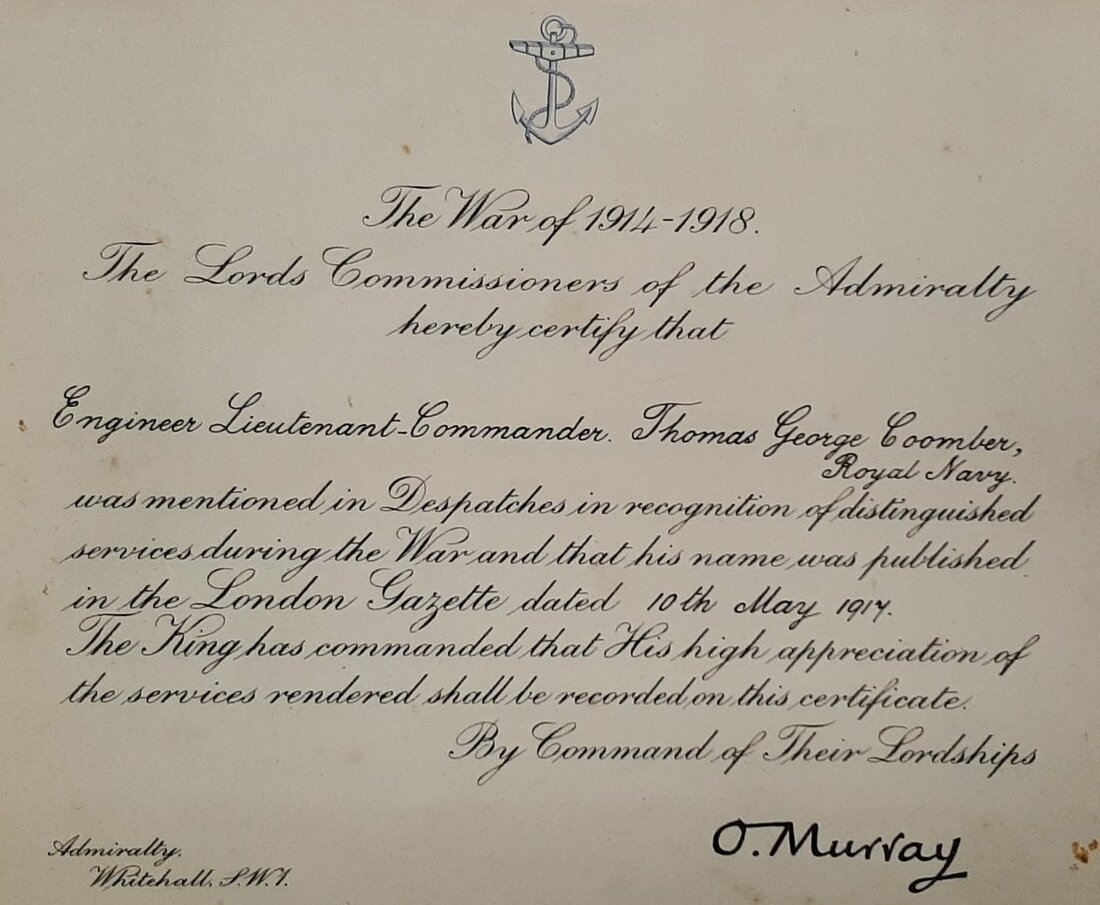 The War of 1914-1918.
The Lords Commissioners of the Admiralty
hereby certify that
Engineer Lieutenant-Commander. Thomas George Coomber,
Royal Navy.
was mentioned in Despatches in recognition of distinguished
services during the War and that his name was published
in the London Gazette dated 10th May 1917.
The King has commanded that His high appreciation of
the services rendered shall be recorded on this certificate.
By Command of Their Lordships
O. Murray
Admiralty.
Whitehall. S.W.1.